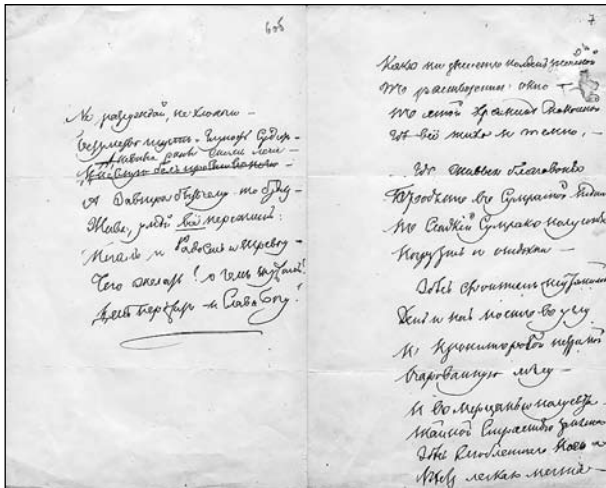 6 об
Не разсуждай, не хлопочи —
Безумство ищетъ, глупость судитъ —
Дневныя раны сномъ лечи —
А завтра быть чему, то будетъ
Живя, умѣй всё пережить:
Печаль и радость и тревогу —
Чего желать! о чемъ тужить!
День пережитъ — и слава Богу!
7
Какъ ни дышетъ полдень знойной
Въ растворенное окно —
Въ этой храминѣ спокойной
Гдѣ всё тихо и темно, —
Гдѣ живыя благовонья
Бродятъ въ сумрачной тѣни
Въ сладкій сумракъ полусонья
Погрузись и отдохни —
Здѣсь фонтанъ неутомимой
День и ночь поетъ въ углу
И кропитъ росой незримой
Очарованную мглу —
И въ мерцаньѣ полусвѣта
Тайной страстью занята
Здѣсь влюбленнаго поэта
Вѣетъ легкая мечта —